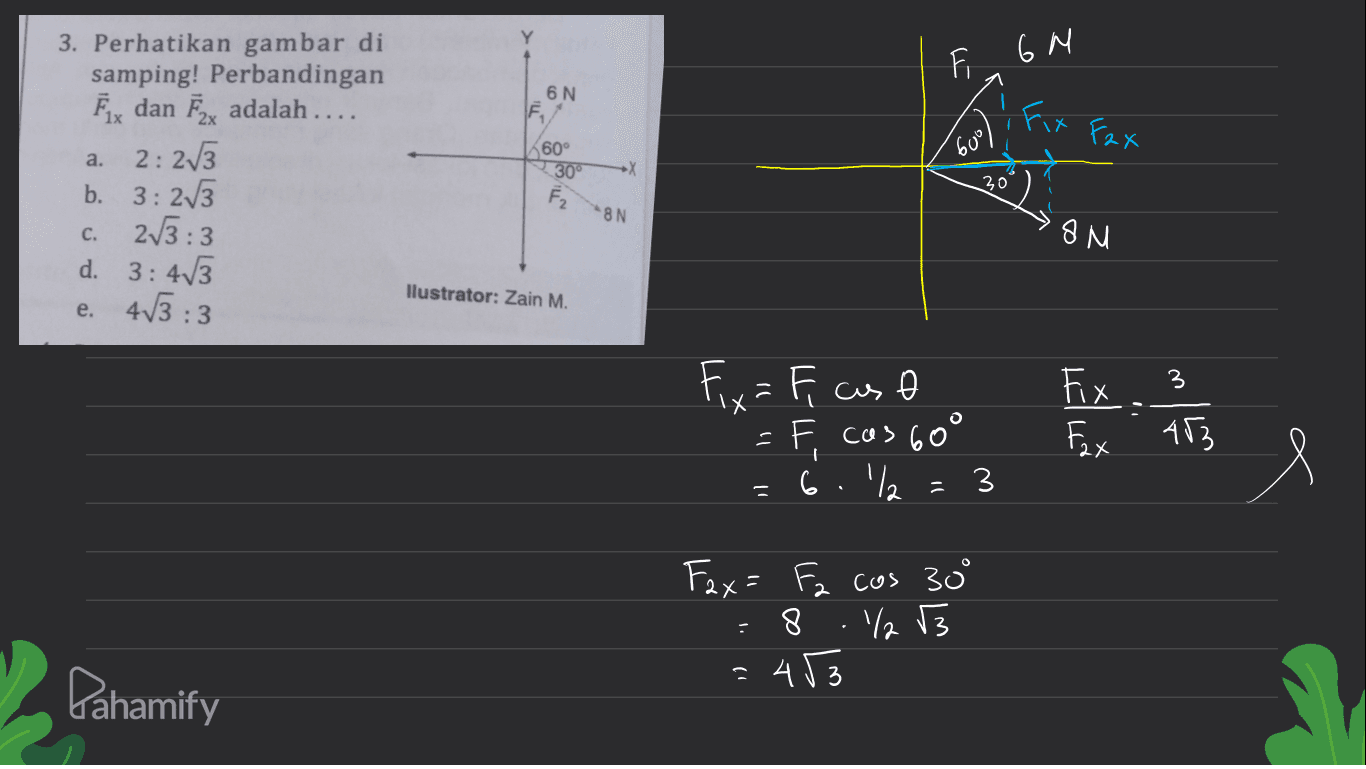 3. Perhatikan gambar di
samping! Perbandingan
F⃗1x dan F⃗2x adalah ....
a. 2 : 2√3
b. 3 : 2√3
c. 2√3 : 3
d. 3 : 4√3
e. 4√3 : 3
Y
6 N
F⃗1
60°
30°
X
F⃗2
8 N
llustrator: Zain M.
F1 6 N
F1x F2x
60°
30°
8 N
F1x = F1 cos θ
= F1 cos 60°
= 6 . 1/2 = 3
F1x / F2x = 3 / 4√3
F2x = F2 cos 30°
= 8 . 1/2 √3
= 4√3
Pahamify